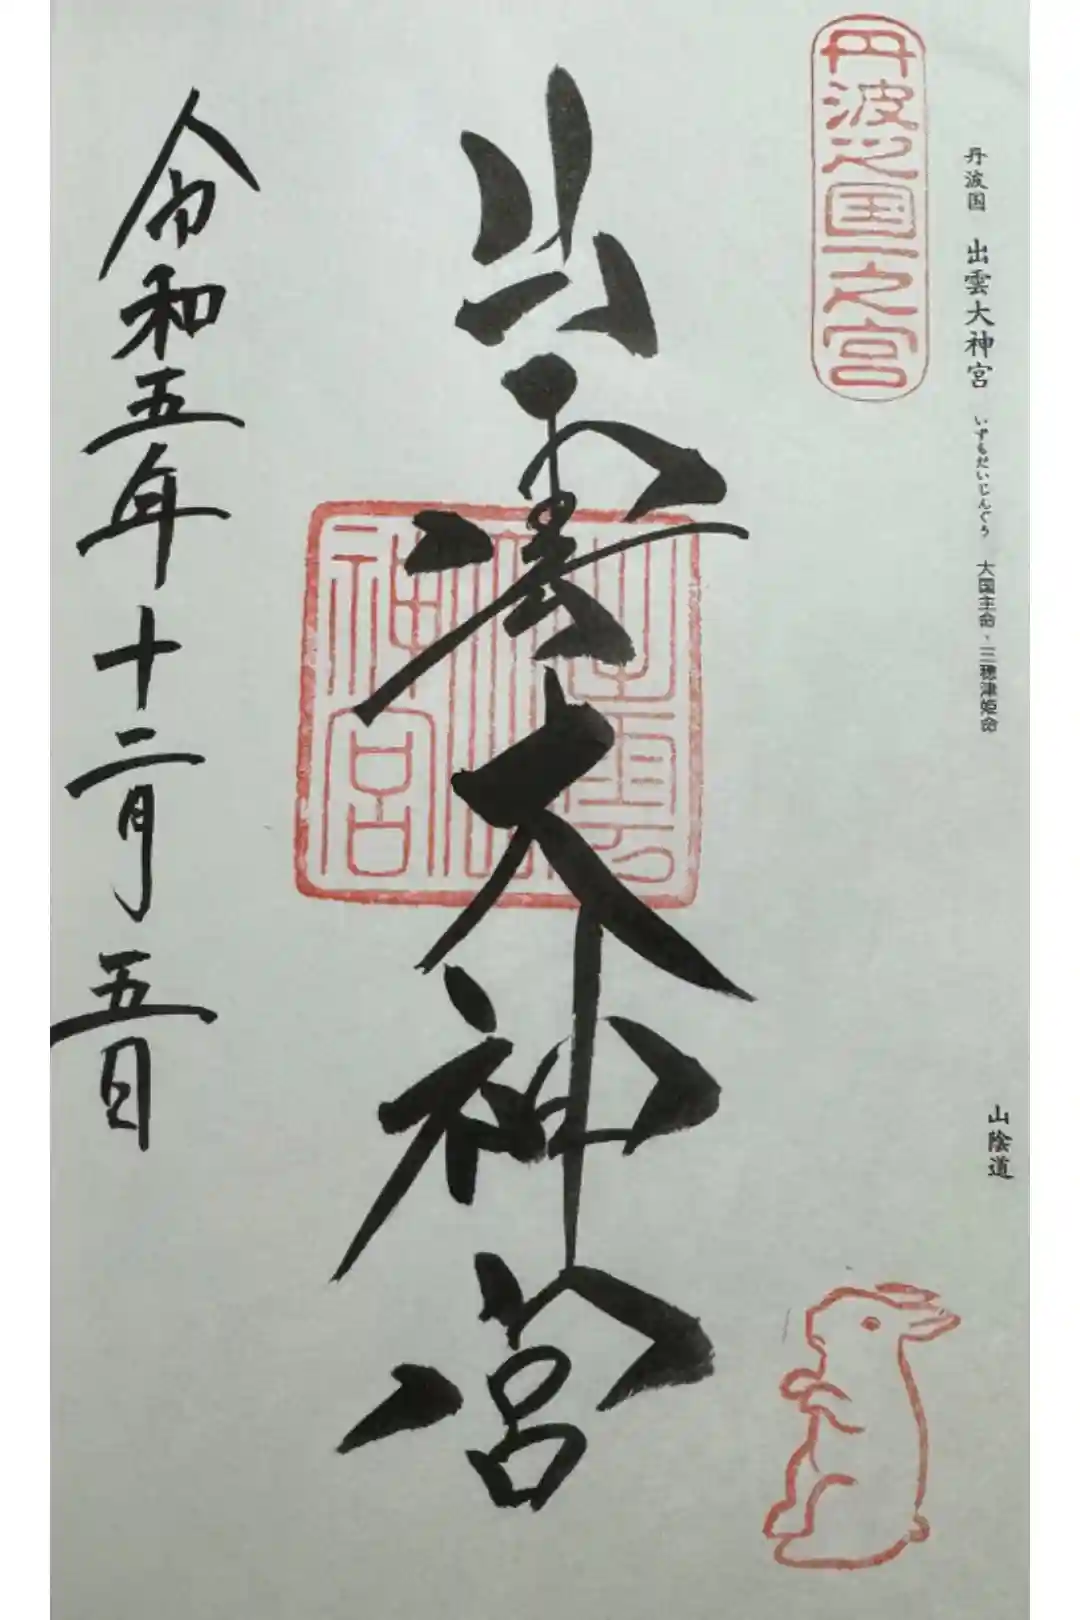 丹波国 出雲大神宮 いずもだいじんぐう 大国主命・三穂津姫命
山陰道
丹波之国一之宮
出雲大神宮
出雲大神宮
令和五年十二月五日